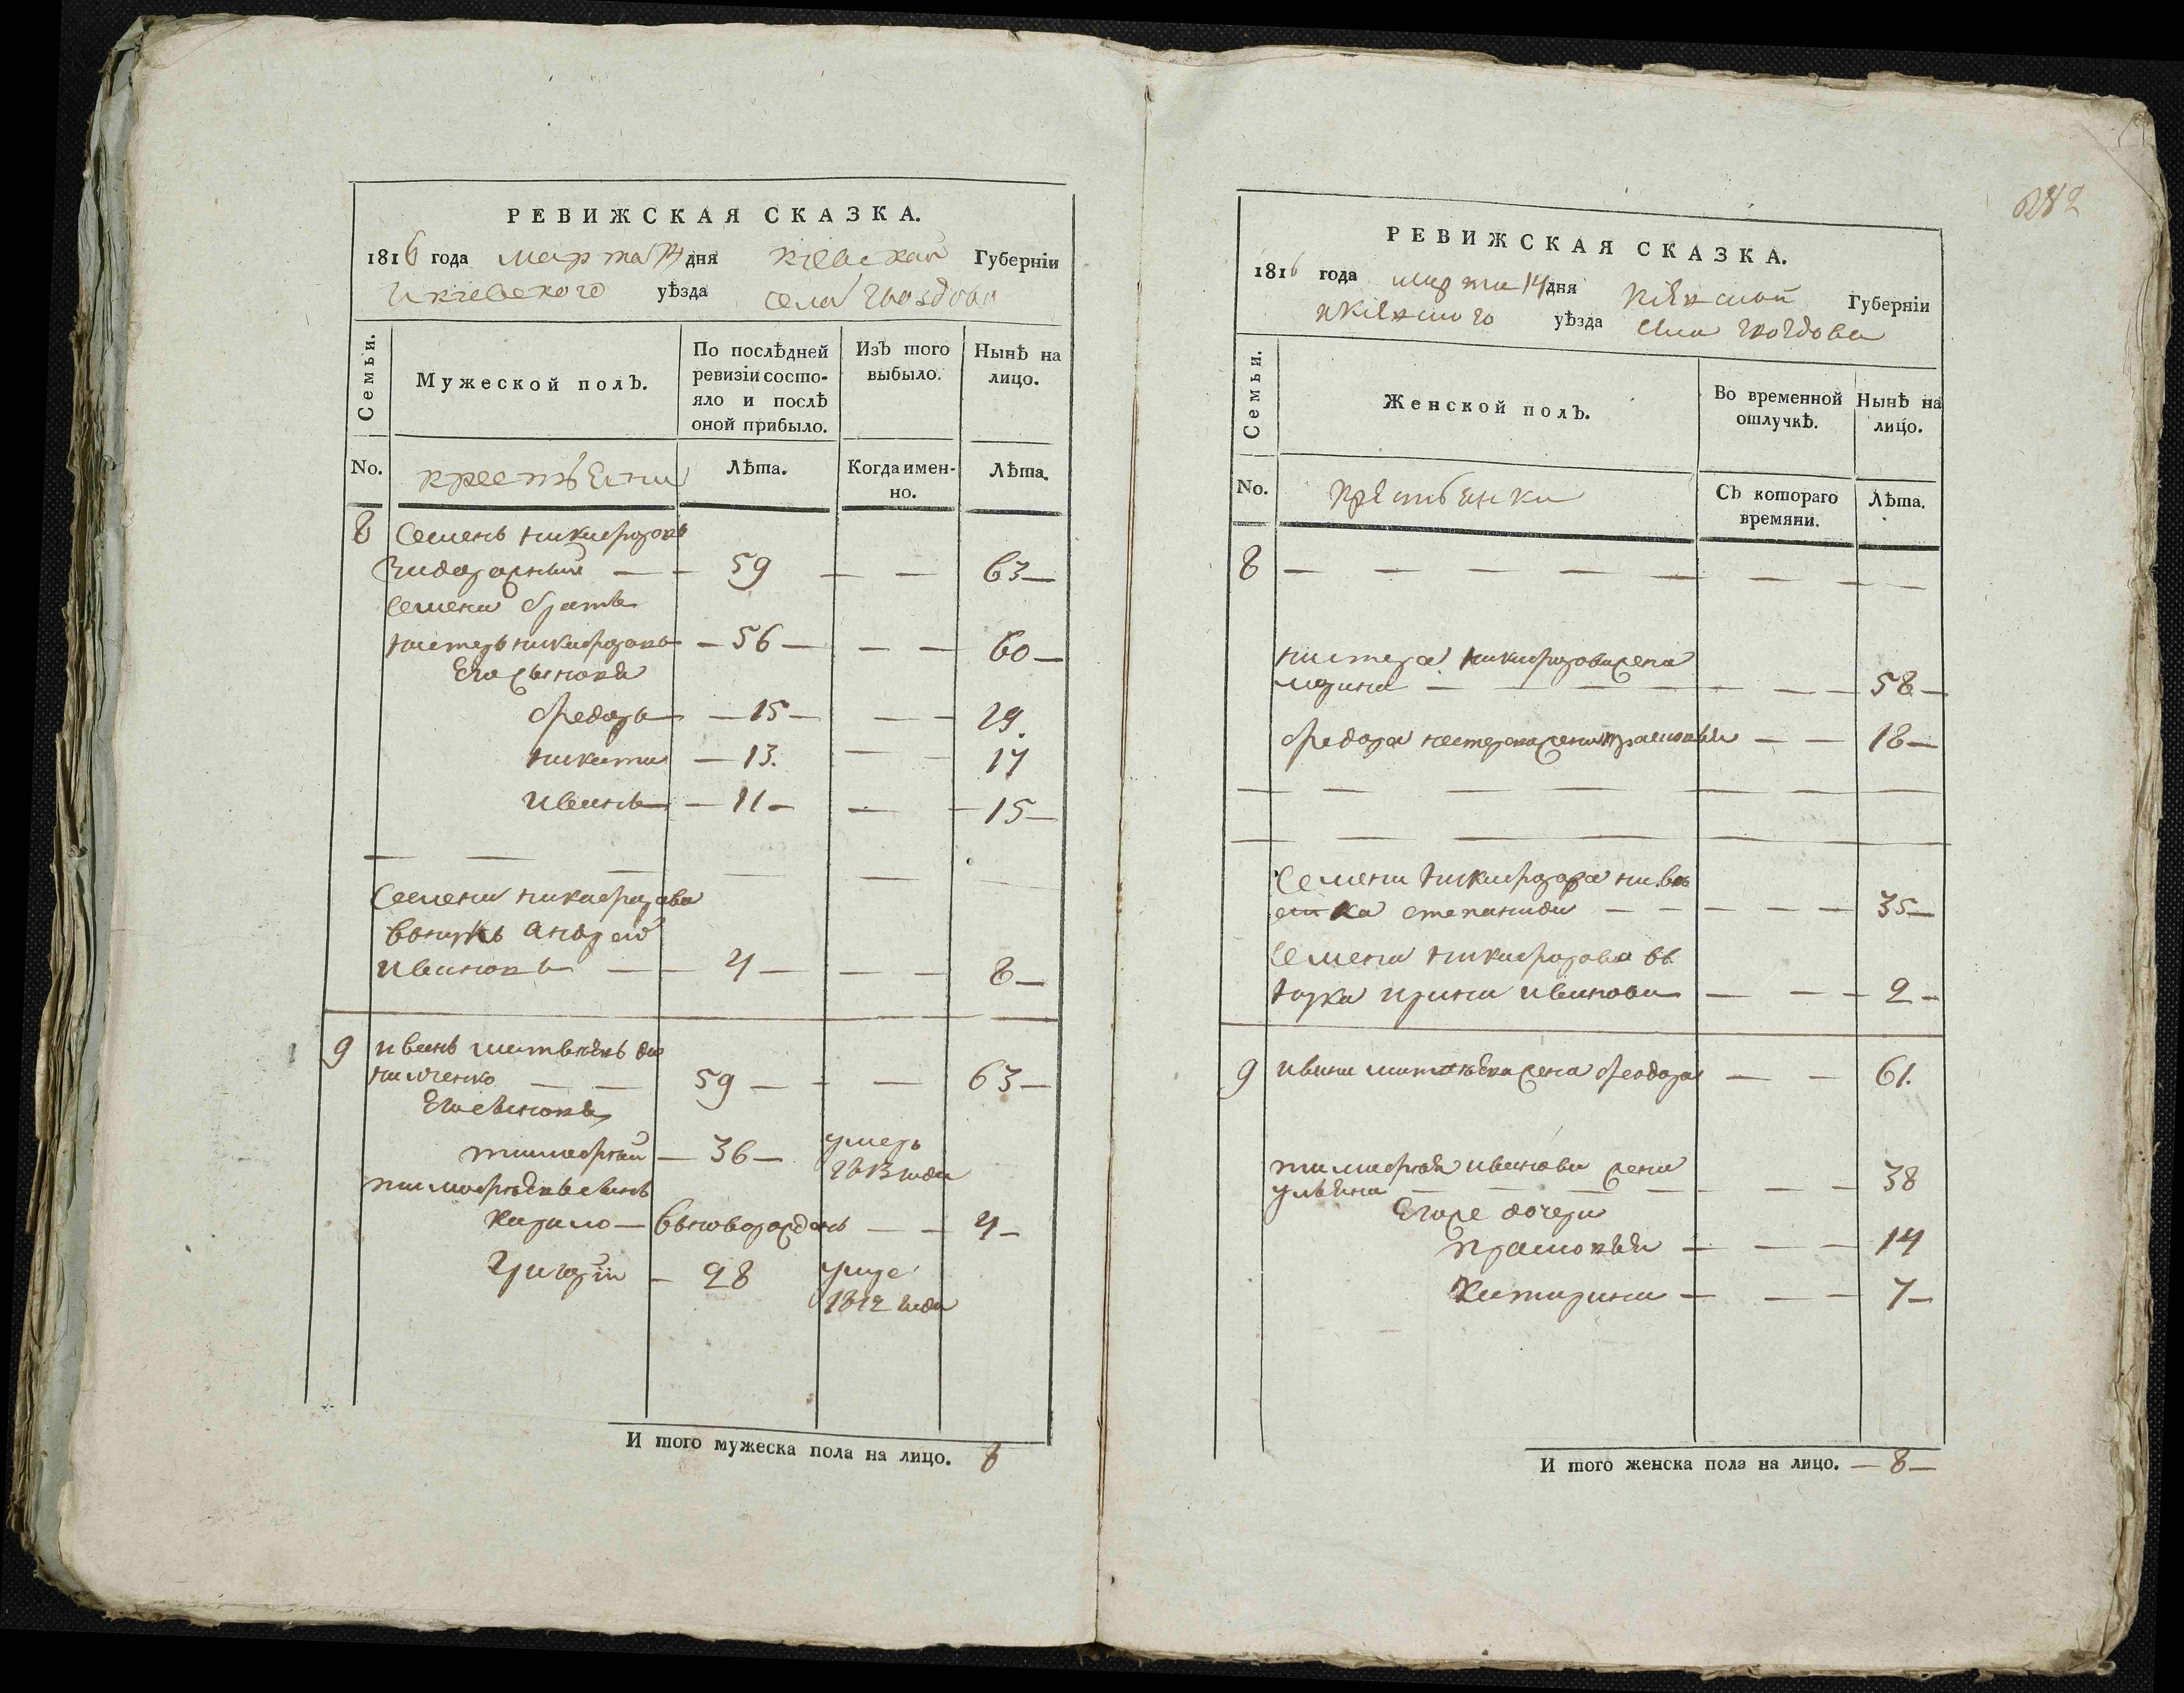 РЕВИЖСКАЯ СКАЗКА.
1816 года марта 14 дня Кіевской Губерніи
и Кіевского уѣзда села Гвоздова
Семьи.
Мужеской полъ.
По послѣдней ревизіи состояло и послѣ оной прибыло.
Изъ того выбыло.
Нынѣ на лицо.
No. крестьяни Лѣта. Когда именно. Лѣта.
8 Семенъ никифоровъ
— — 59 — — 63 —
Семена братъ
нестеръ никифоровъ — 56 — — — 60 —
Его сыновя
федоръ — 15 — — — 19.
никита — 13. — — 17
иванъ — 11 — — — 15 —
Семена никифорова
внукъ андрей
ивановъ — — 4 — — — 8 —
9 иванъ матвѣевъ
— — 59 — — — 63 —
Его сыновя
тимофей — 36 — умеръ
1813 года
тимофѣевъ сынъ
кирило — вноворожденъ — — 4 —
григорій — 28 умре
1812 года
И того мужеска пола на лицо. 8
РЕВИЖСКАЯ СКАЗКА.
1816 года марта 14 дня Кіевской Губерніи
и Кіевского уѣзда села Гвоздова
Семьи.
Женской полъ.
Во временной отлучкѣ.
Нынѣ на лицо.
No. крестьянки Съ котораго времяни. Лѣта.
8 — — — — — — — —
нестера никифорова жена
марина — — — — — — — 58 —
федора нестерова жена прасковья — — 18 —
Семена никифорова невѣ
стка степанида — — — — — 35 —
Семена никифорова вв
нучка ирина иванова — — — 2 —
9 ивана матвѣева жена феодора — — 61.
тимофѣя иванова жена
ульяна — — — — — — 38
Егоже дочери
прасковья — — — 14
катирина — — — 7 —
И того женска пола на лицо. — 8 —